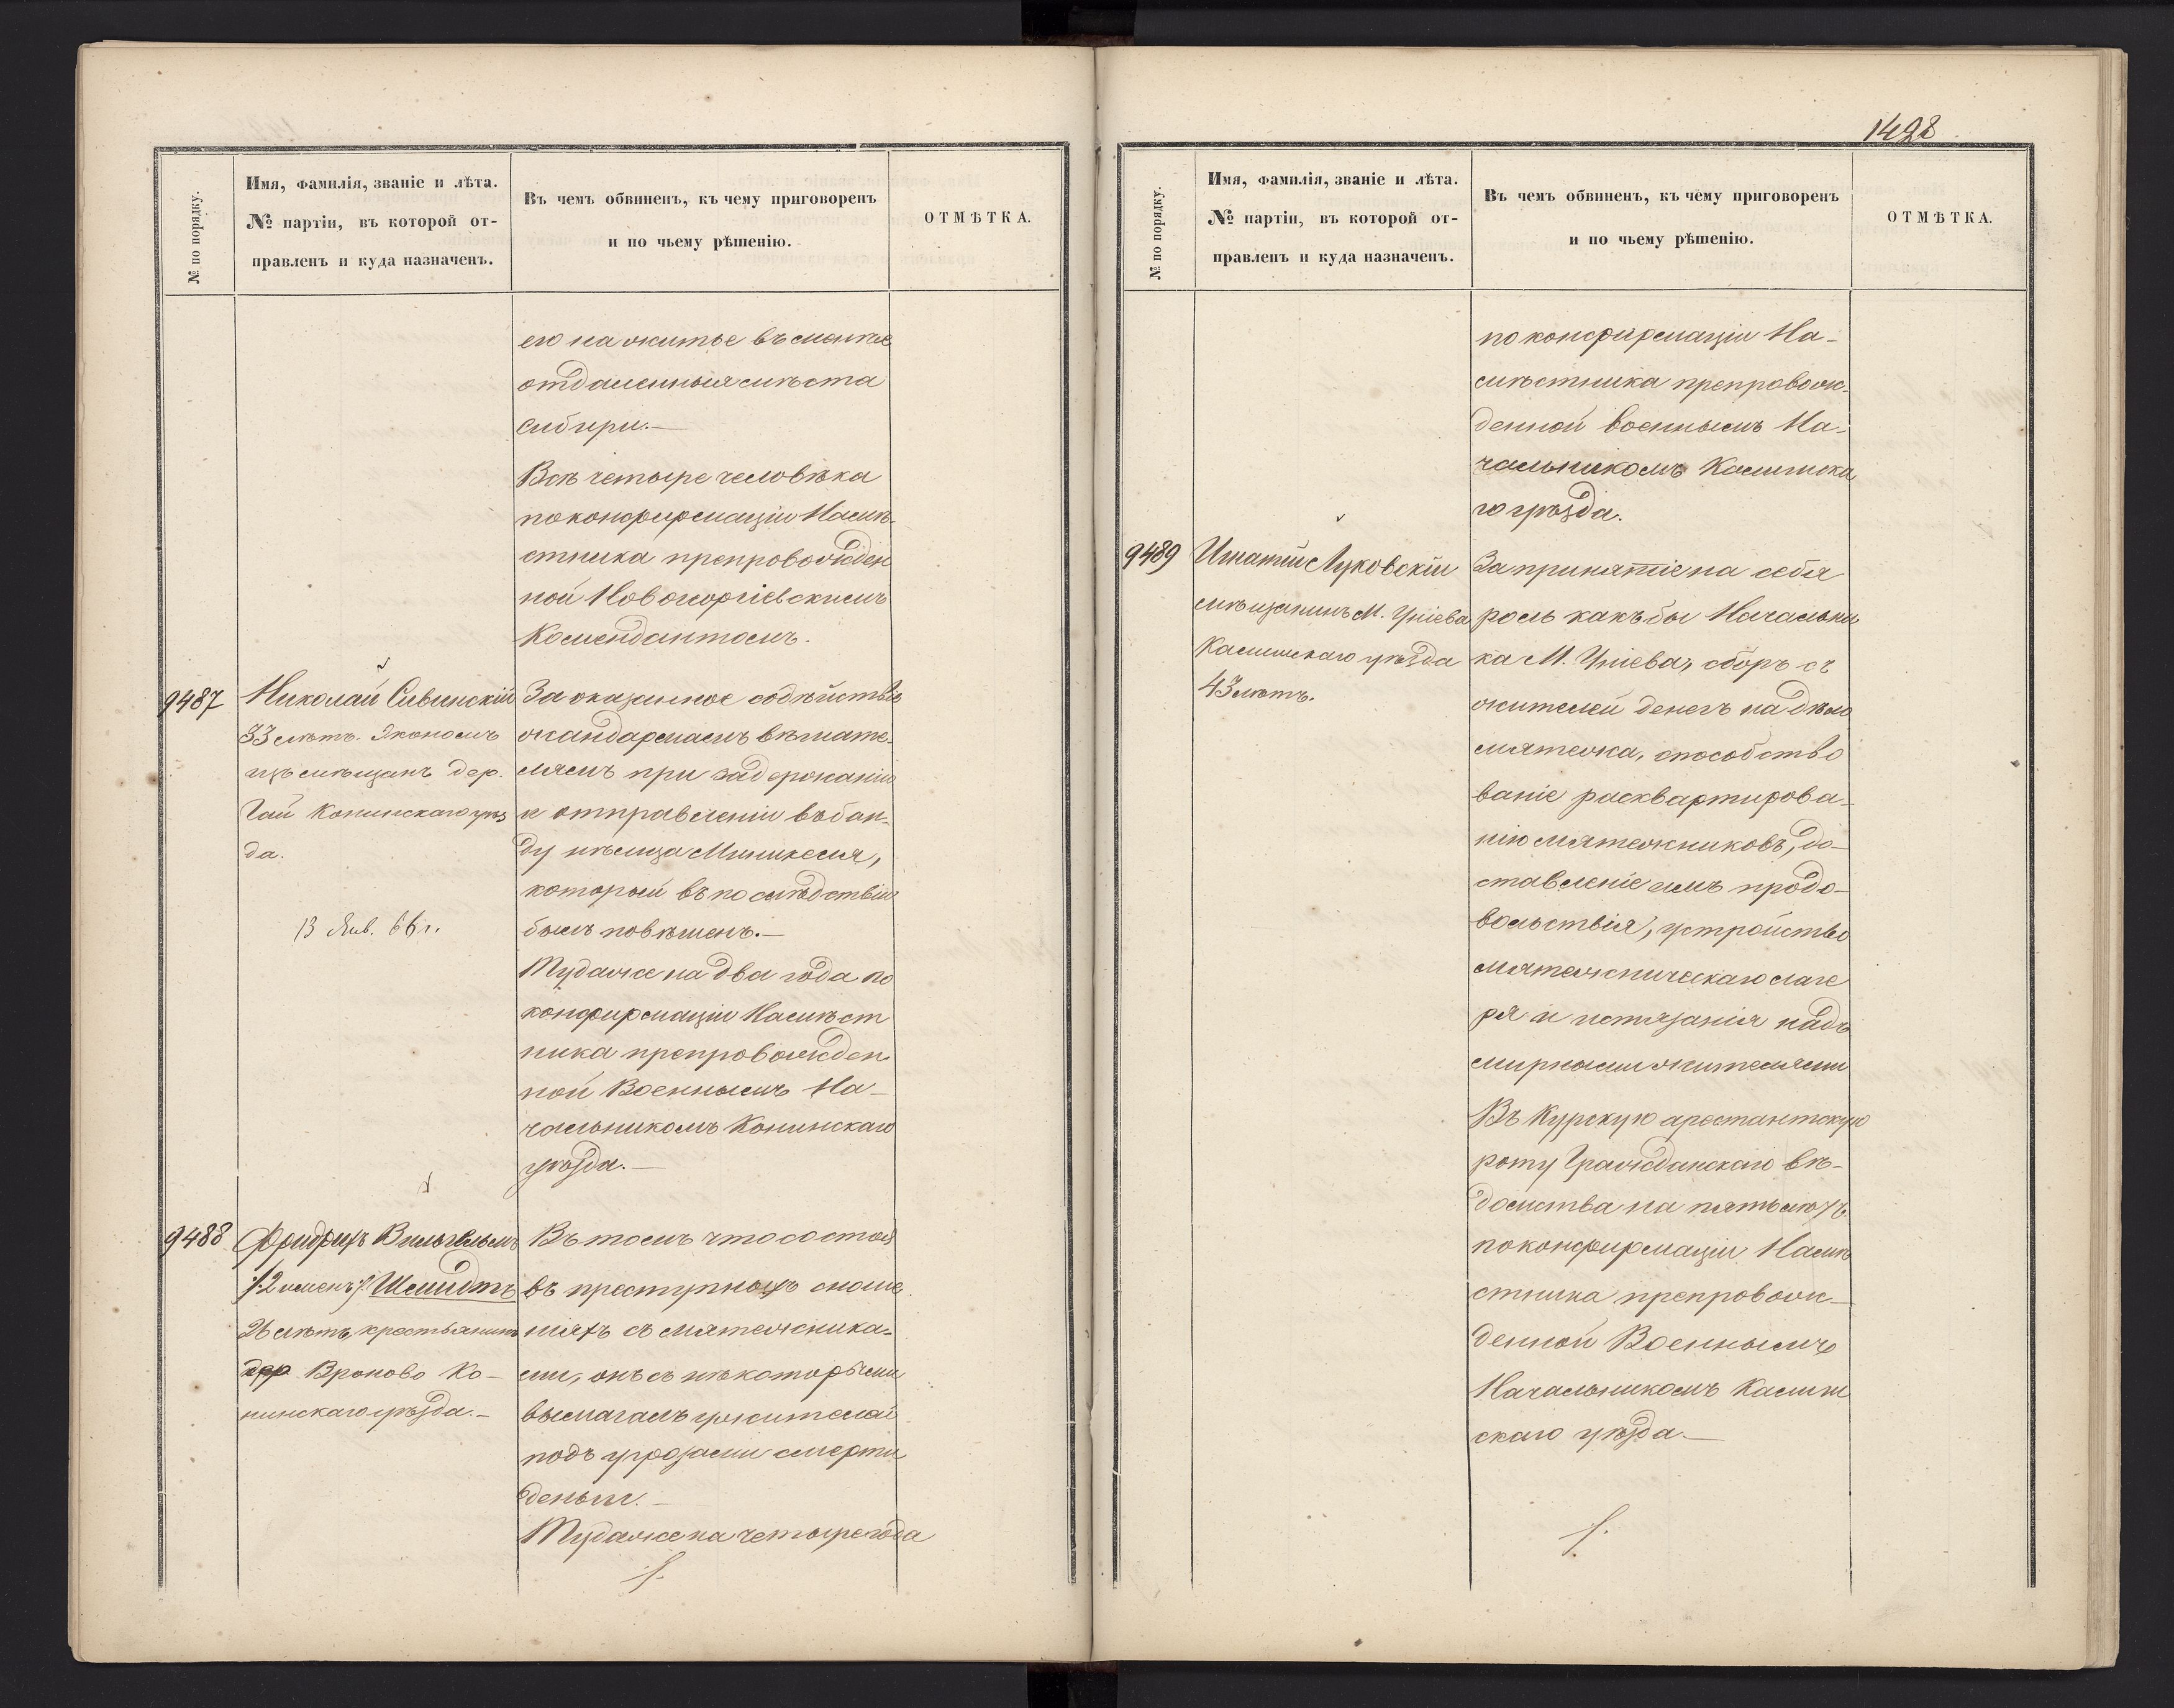 № по порядку.
Имя, фамилія, званіе и лѣта.
№ партіи, въ которой от-
правленъ и куда назначенъ.
Въ чемъ обвиненъ, къ чему приговоренъ
и по чьему рѣшенію.
ОТМѢТКА.
его на житье въ менѣе
отдаленныя мѣста
Сибири.—
Всѣ четыре человѣка
по конфирмаціи Намѣ-
стника препровожден
ной Новогеоргіевскимъ
Комендантомъ.
9487
Николай Сивинскій
33 лѣтъ. Экономъ
изъ мѣщанъ дер.
Гай Конинскаго уѣз
да.
13 Янв. 66 г.
За оказанное содѣйствіе
жандармамъ вѣшате-
лямъ при задержаніи
и отправленіи въ бан-
ду нѣмца Миникеля,
который въ послѣдствіи
былъ повѣшенъ.—
Туда же на два года по
конфирмаціи Намѣст
ника препровожден
ной Военнымъ На-
чальникомъ Конинскаго
уѣзда.—
9488
Фридрихъ Вильгельмъ
/:2 именъ:/ Шмидтъ
26 лѣтъ, крестьянинъ
дер Вроново Ко-
нинскаго уѣзда.—
Въ томъ что состоя
въ преступныхъ сноше
ніяхъ съ мятежника-
ми, онъ съ нѣкоторыми
вымагалъ у жителей
подъ угрозами смерти
деньги.—
Туда же на четыре года
/.
1428
№ по порядку.
Имя, фамилія, званіе и лѣта.
№ партіи, въ которой от-
правленъ и куда назначенъ.
Въ чемъ обвиненъ, къ чему приговоренъ
и по чьему рѣшенію.
ОТМѢТКА.
по конфирмаціи На-
мѣстника препровож-
денной военнымъ На-
чальникомъ Калишска
го уѣзда.
9489
Игнатій Луковскій
мѣщанинъ М. Уніева
Калишскаго уѣзда
43 лѣтъ.
За принятіе на себя
роль какъ бы Начальни
ка М. Уніева, сборъ съ
жителей денегъ на дѣло
мятежа, способство
ваніе расквартирова-
нію мятежниковъ, до-
ставленіе имъ продо-
вольствія, устройство
мятежническаго лаге
ря и истязанія надъ
мирными жителями
Въ Курскую арестантскую
роту Гражданскаго вѣ-
домства на пять лѣтъ
по конфирмаціи Намѣ
стника препровож-
денной Военнымъ
Начальникомъ Калиш
скаго уѣзда.—
/.